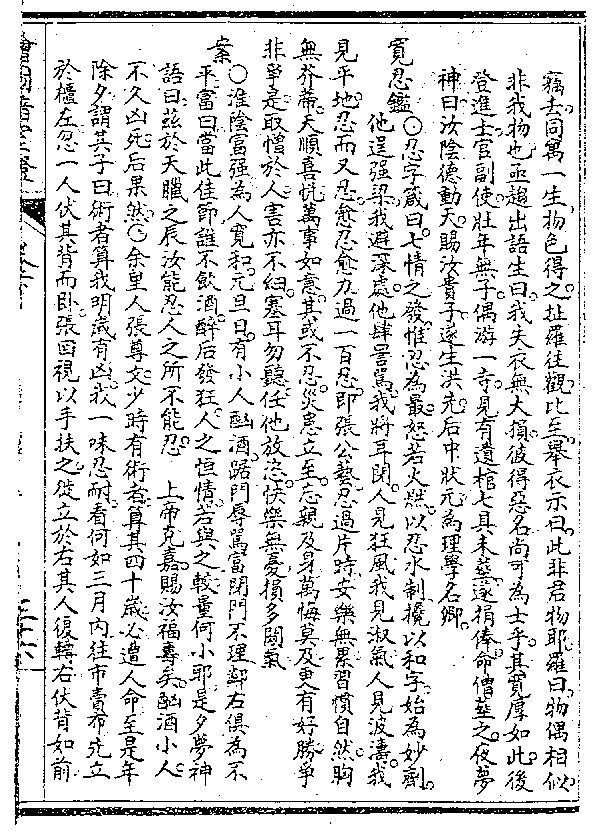 竊去同寓一生物色得之扯羅往觀比至舉衣示曰此非君物耶羅曰物偶相似
非我物也亟趨出語生曰我失衣無大損彼得惡名尚可為士乎其寬厚如此後
登進士官副使壯年無子偶游一寺見有遺棺七具未葬遂捐俸命僧葬之夜夢
神曰汝陰德動天賜汝貴子遂生洪先后中狀元為理學名卿
寬忍鑑
〇忍字箴曰七情之發惟忍為最怒若火燃以忍水制攙以和字始為妙劑
他逞强梁我避深處他肆詈罵我將耳閉人見狂風我見淑氣人見波濤我
見平地忍而又忍愈忍愈力過一百忍即張公藝忍過片時安樂無累習慣自然胸
無芥蒂天順喜悅萬事如意其或不忍災患立至忘親及身萬悔莫及更有好勝爭
非爭是取憎於人害亦不細塞耳勿聽任他放恣快樂無憂損多閒氣
案
〇淮陰富强為人寬和元旦日有小人酗酒踞門辱罵富閉門不理鄰右俱為不
平富曰當此佳節誰不飲酒醉后發狂人之恒情若與之較量何小耶是夕夢神
語曰茲於天臘之辰汝能忍人之所不能忍 上帝克嘉賜汝福壽矣酗酒小人
不久凶死后果然〇余里人張尊文少時有術者算其四十歲必遭人命至是年
除夕謂其子曰術者算我明歲有凶我一味忍耐看何如三月內往市賣布先立
於櫃左忽一人伏其背而卧張回視以手扶之從立於右其人復轉右伏背如前